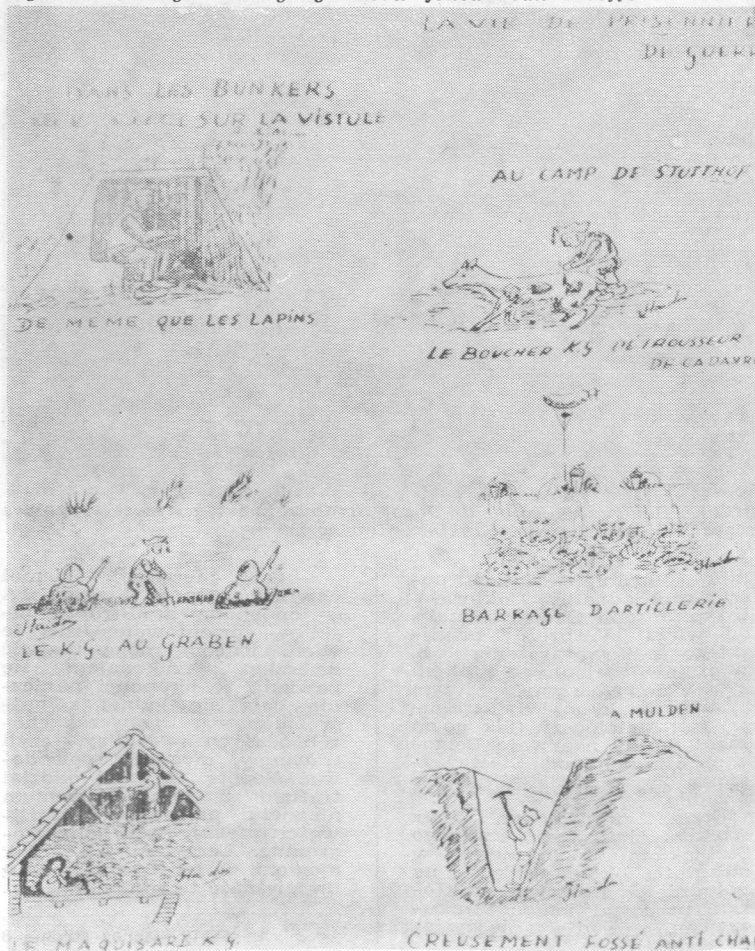 LA VIE DE PRISONNIER
DE GUERR
DANS LES BUNKERS
SUR LA VISTULE
DE MEME QUE LES LAPINS
AU CAMP DE STUTTHOF
LE BOUCHER K.G. DÉTROUSSEUR
DE CADAVRE
LE K.G. AU GRABEN
BARRAGE D'ARTILLERIE
LE MAQUISARD K.G.
A MULDEN
CREUSEMENT FOSSÉ ANTI CHA